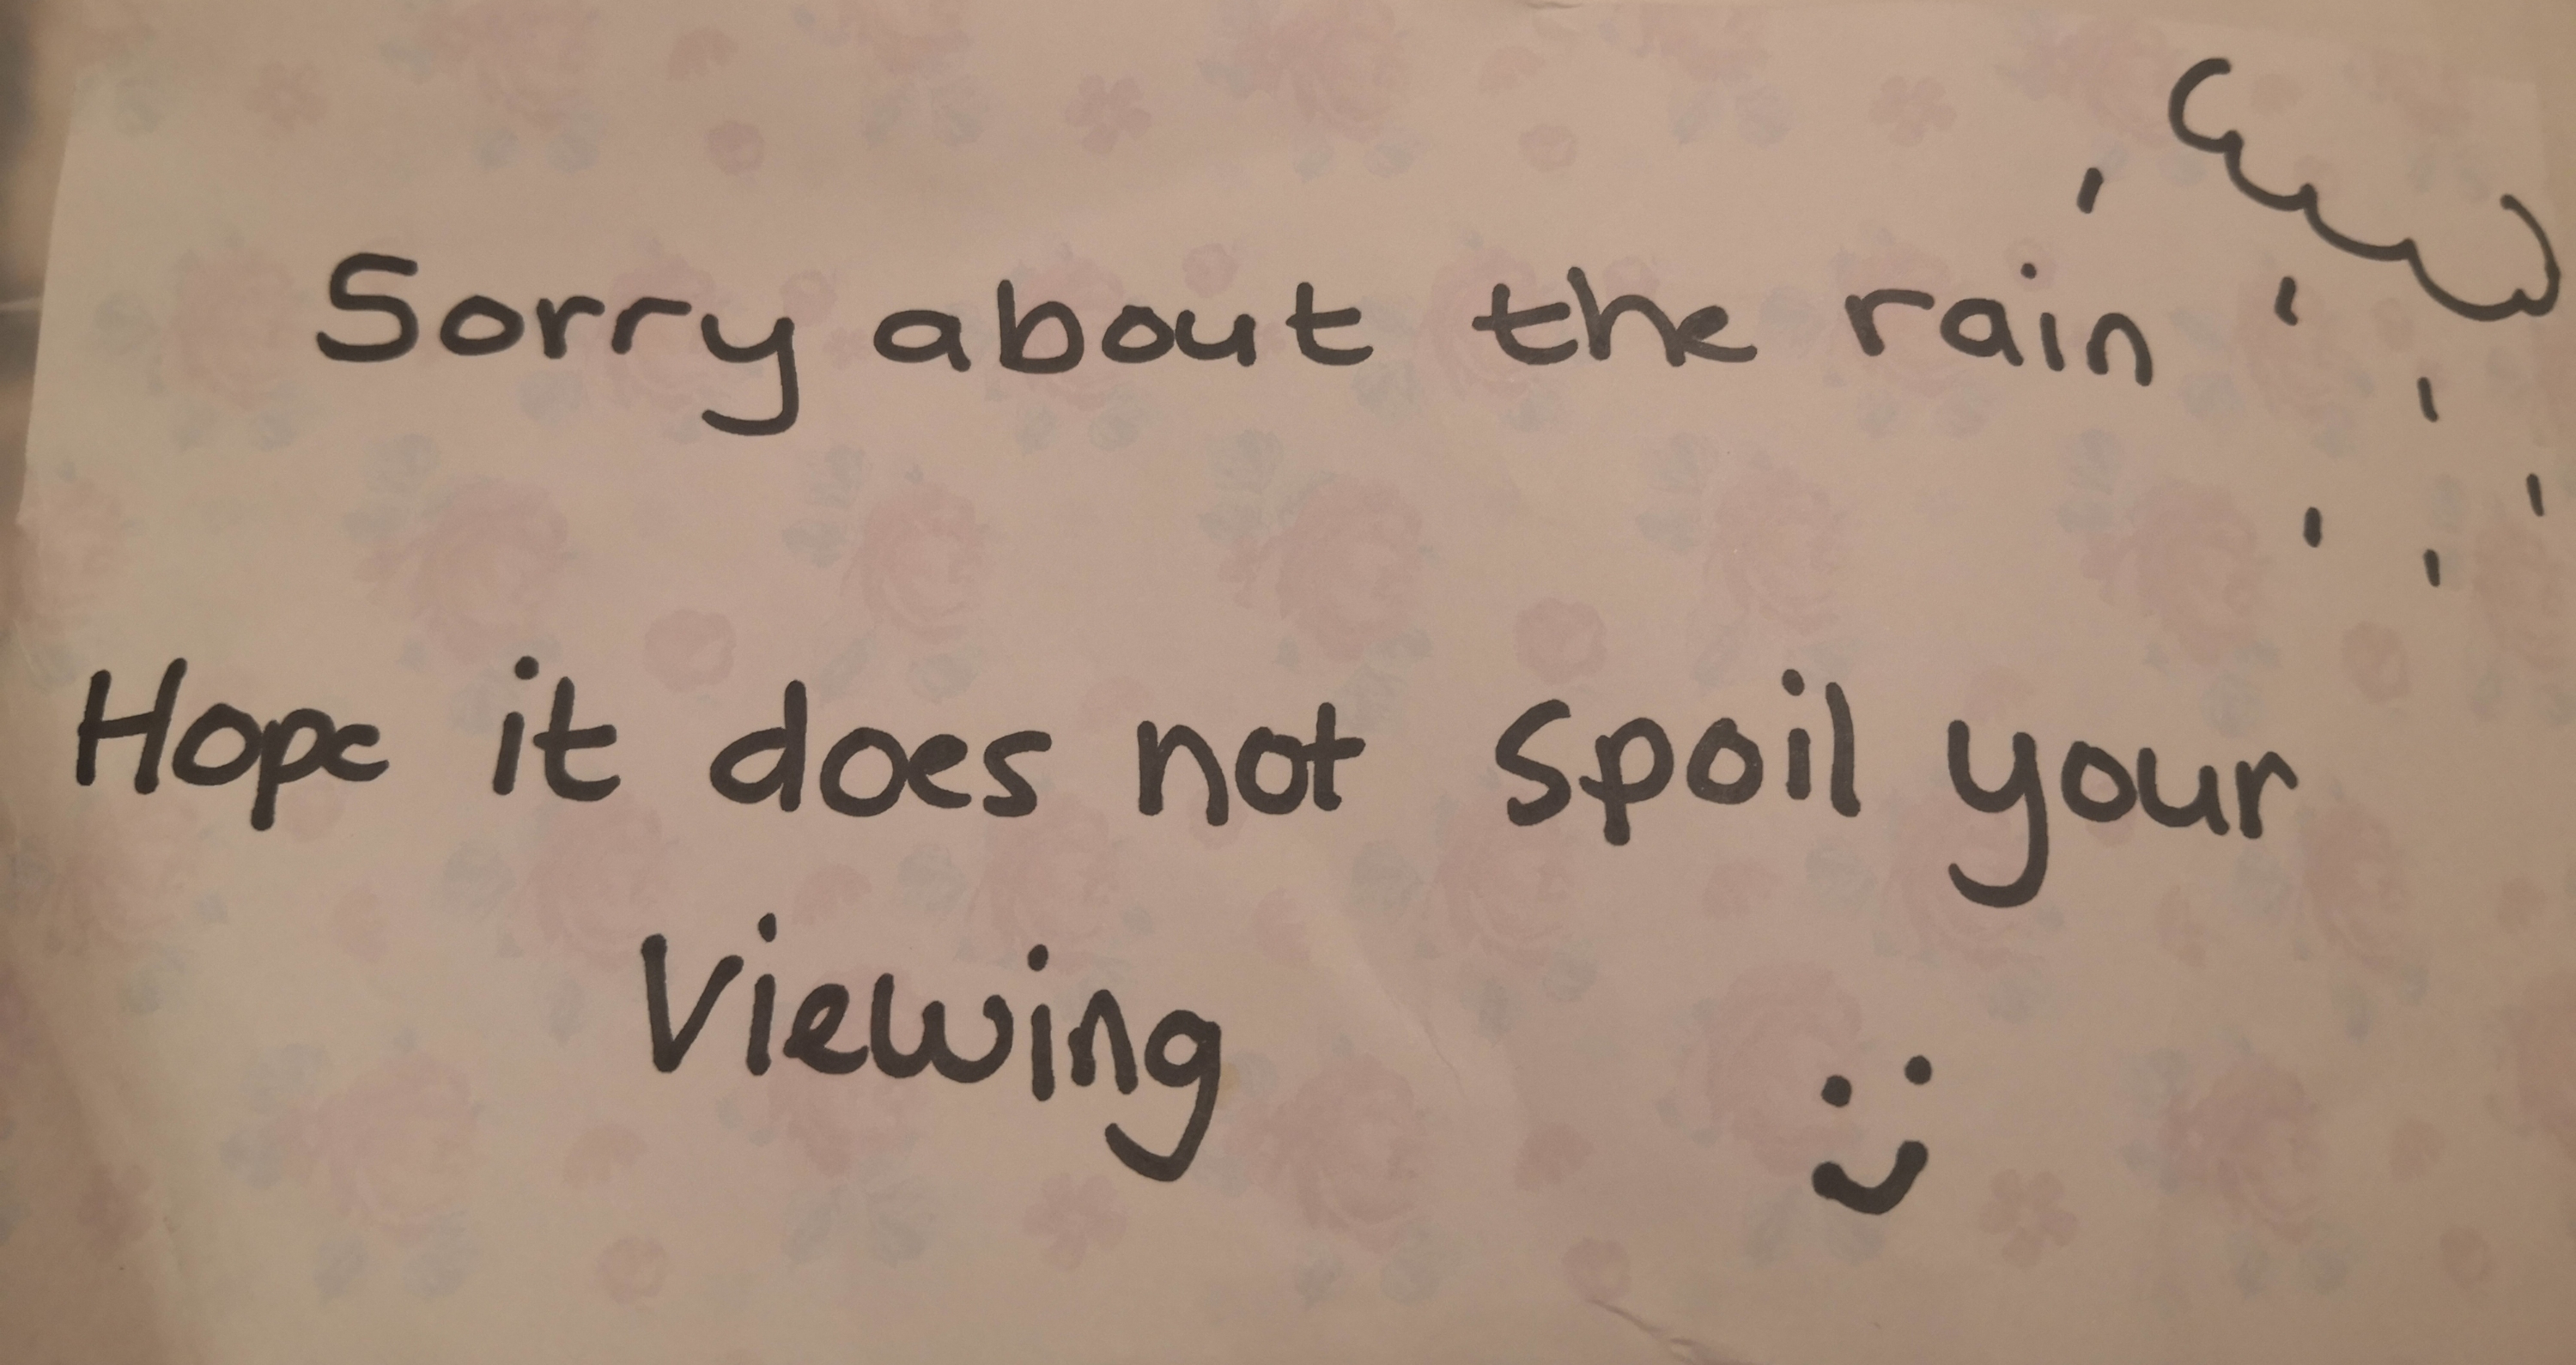 Sorry about the rain
Hope it does not spoil your
Viewing